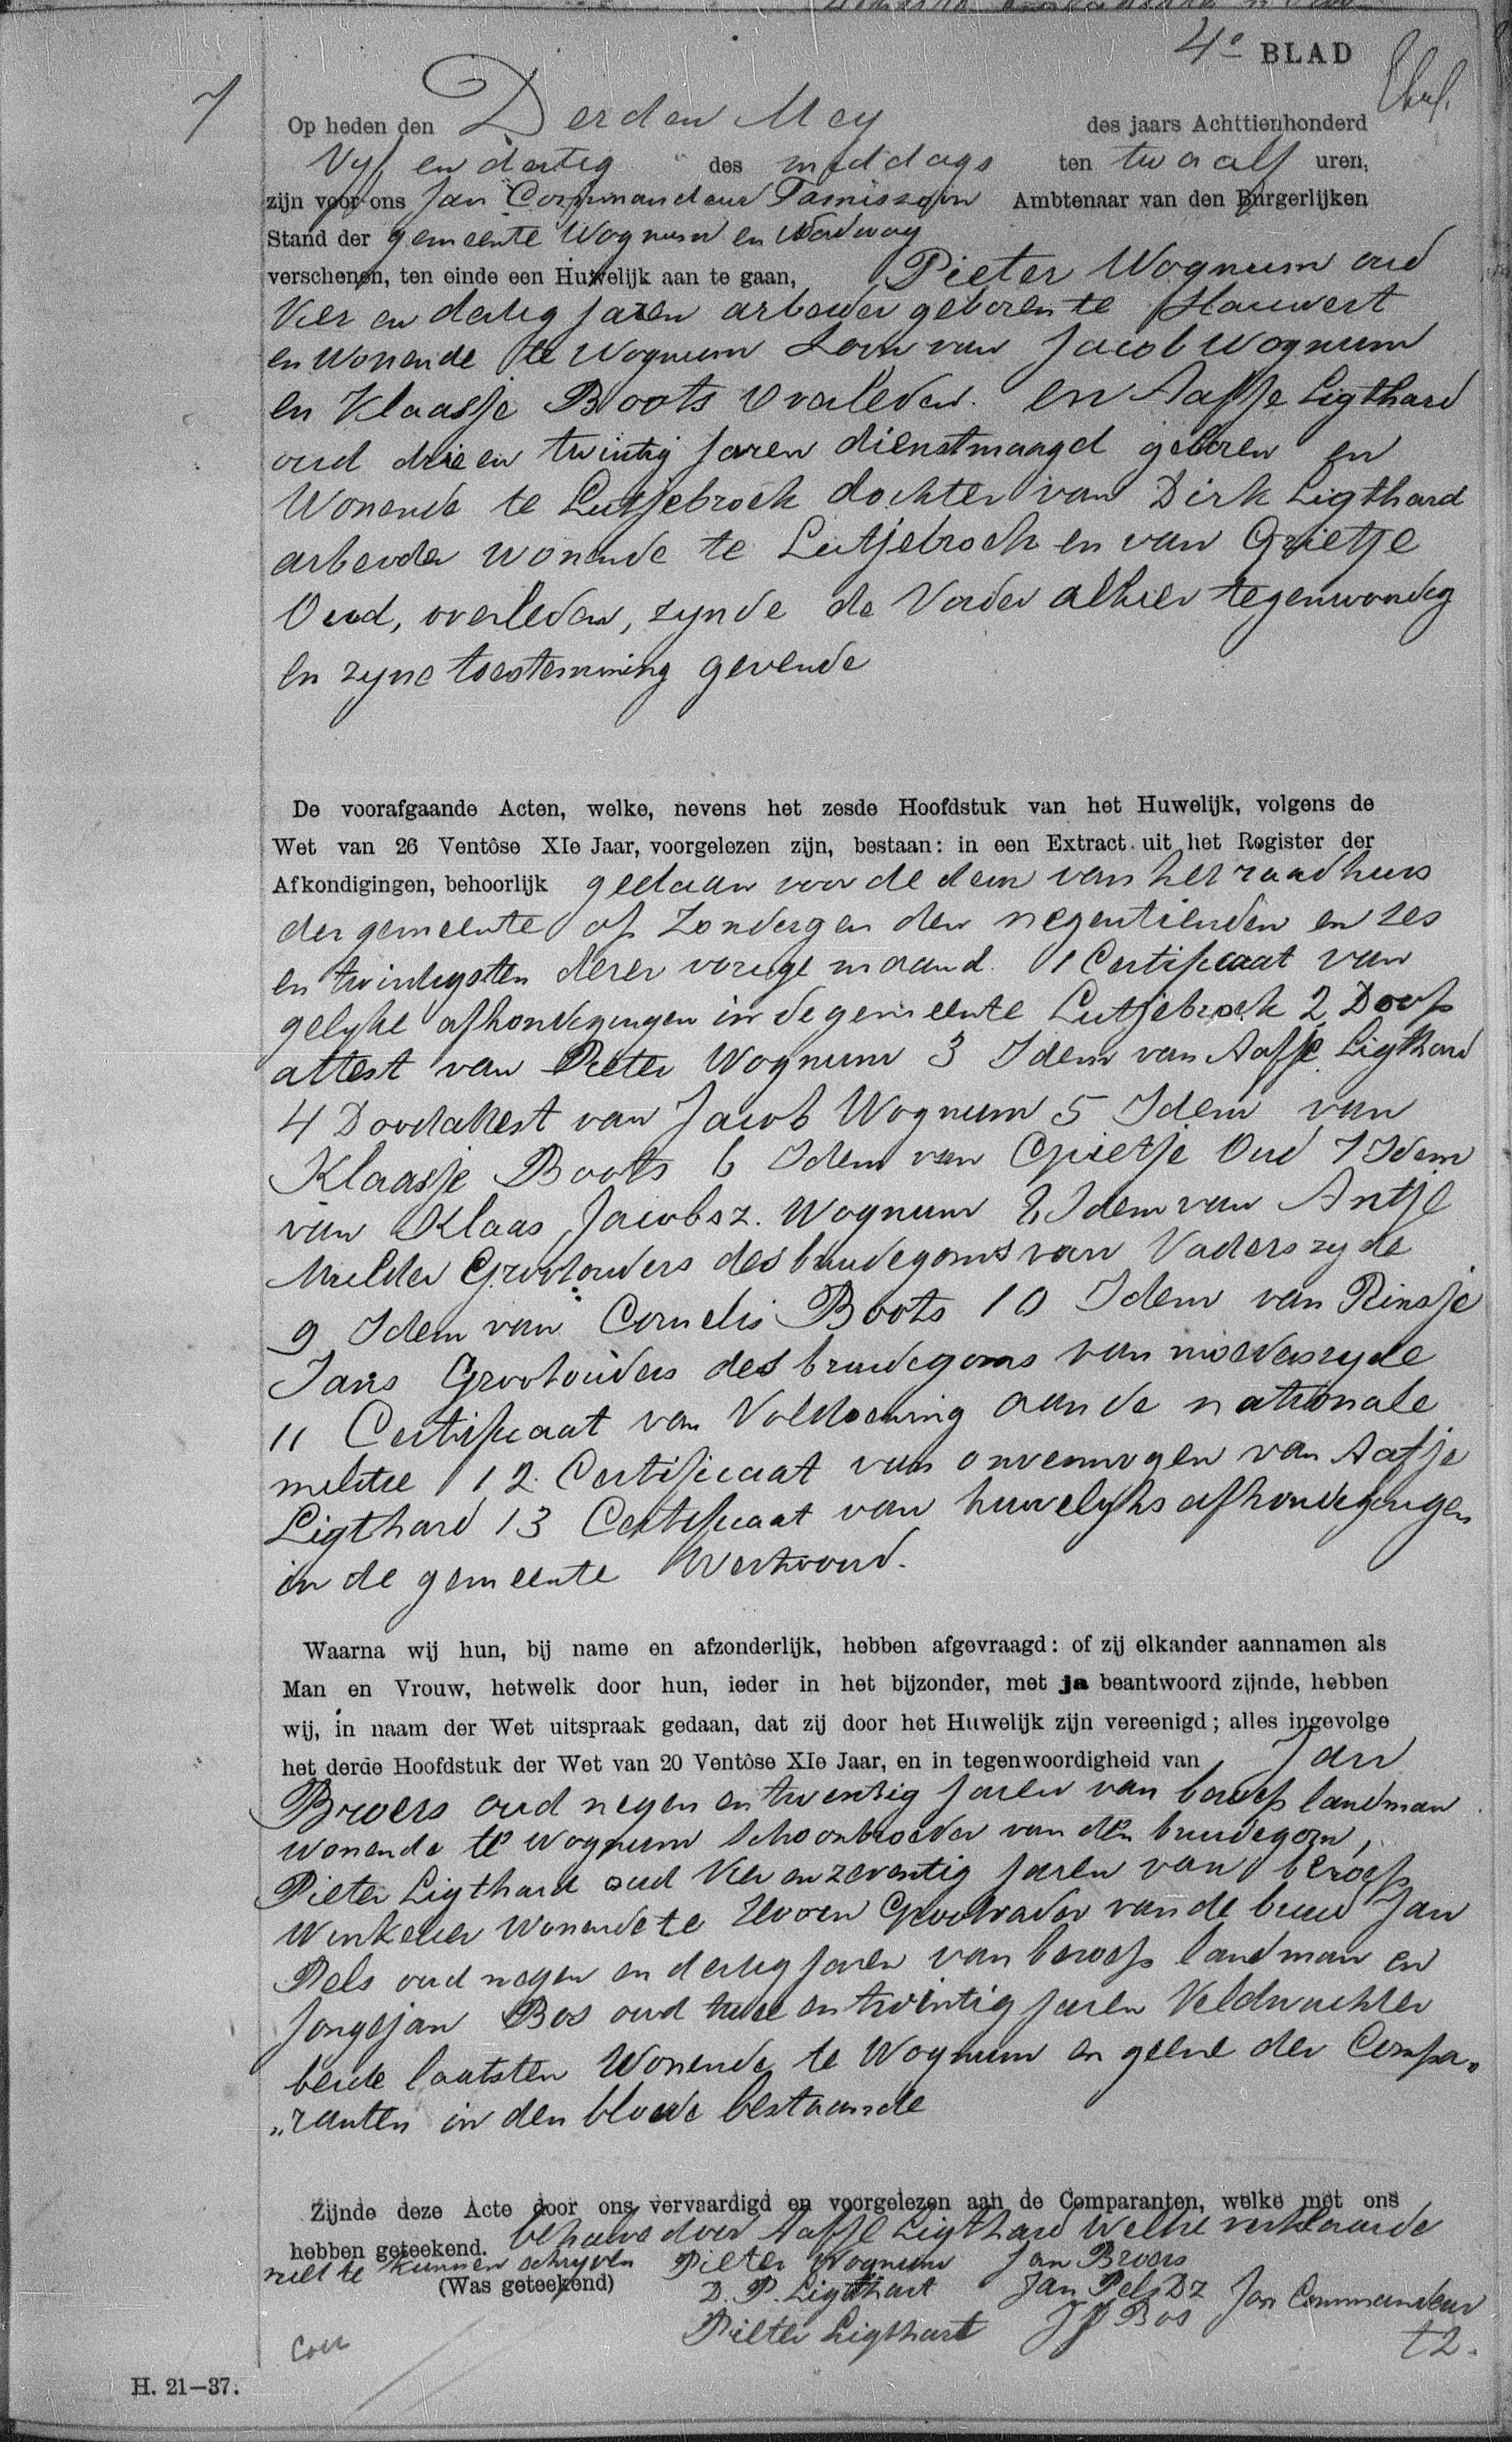 4e BLAD
7
Op heden den Derden Mey des jaars Achttienhonderd
Vyf en dertig des middags ten twaalf uren,
zijn voor ons Jan Commandeur Tamiszoon Ambtenaar van den Burgerlijken
Stand der gemeente Wognum en Wadway
verschenen, ten einde een Huwelijk aan te gaan, Pieter Wognum oud
Vier en dertig jaren arbeider geboren te Hauwert
en Wonende te Wognum Zoon van Jacob Wognum
en Klaasje Boots Overleden. en Aafje Ligthard
oud drie en twintig jaren dienstmaagd geboren en
Wonende te Lutjebroek dochter van Dirk Ligthard
arbeider wonende te Lutjebroek en van Grietje
Oud, overleden, zynde de Vader alhier tegenwoordig
en zyne toestemming gevende
De voorafgaande Acten, welke, nevens het zesde Hoofdstuk van het Huwelijk, volgens de
Wet van 26 Ventôse XIe Jaar, voorgelezen zijn, bestaan: in een Extract uit het Register der
Afkondigingen, behoorlijk gedaan voor de deur van het raadhuis
der gemeente op Zondagen den negentienden en zes
en twintigsten dezer vorige maand. 1 Certificaat van
gelyke afkondigingen in de gemeente Lutjebroek 2 Doop
attest van Pieter Wognum 3 Idem van Aafje Ligthard
4 Doodattest van Jacob Wognum 5 Idem van
Klaasje Boots 6 Idem van Grietje Oud 7 Idem
van Klaas Jacobsz. Wognum 8 Idem van Antje
Mulder Grootouders des bruidegoms van Vaderszyde
9 Idem van Cornelis Boots 10 Idem van Rinsje
Jans Grootouders des bruidegoms van moederszyde
11 Certificaat van Voldoening aan de nationale
militie 12 Certificaat van onvermogen van Aafje
Ligthard 13 Certificaat van huwelyks afkondigingen
in de gemeente Westwoud.
Waarna wij hun, bij name en afzonderlijk, hebben afgevraagd: of zij elkander aannamen als
Man en Vrouw, hetwelk door hun, ieder in het bijzonder, met ja beantwoord zijnde, hebben
wij, in naam der Wet uitspraak gedaan, dat zij door het Huwelijk zijn vereenigd; alles ingevolge
het derde Hoofdstuk der Wet van 20 Ventôse XIe Jaar, en in tegenwoordigheid van Jan
Broers oud negen en twentig jaren van beroep landman
wonende te Wognum Schoonbroeder van den bruidegom,
Pieter Ligthard oud Vier en zeventig jaren van beroep
Winkelier Wonende te Hoorn Grootvader van de bruid Jan
Pels oud negen en dertig jaren van beroep landman en
Jongejan Bos oud twee en twintig jaren Veldwachter
beide laatsten Wonende te Wognum en geene der Compa„
„ranten in den bloede bestaande
Zijnde deze Acte door ons vervaardigd en voorgelezen aan de Comparanten, welke met ons
hebben geteekend. behalve door Aafje Ligthard Welke verklaarde
niet te kunnen schryven Pieter Wognum Jan Broers
(Was geteekend) D. P. Ligthart Jan Pels Dz Jan Commandeur
Pieter Ligthart JJ Bos Tz.
H. 21—37.